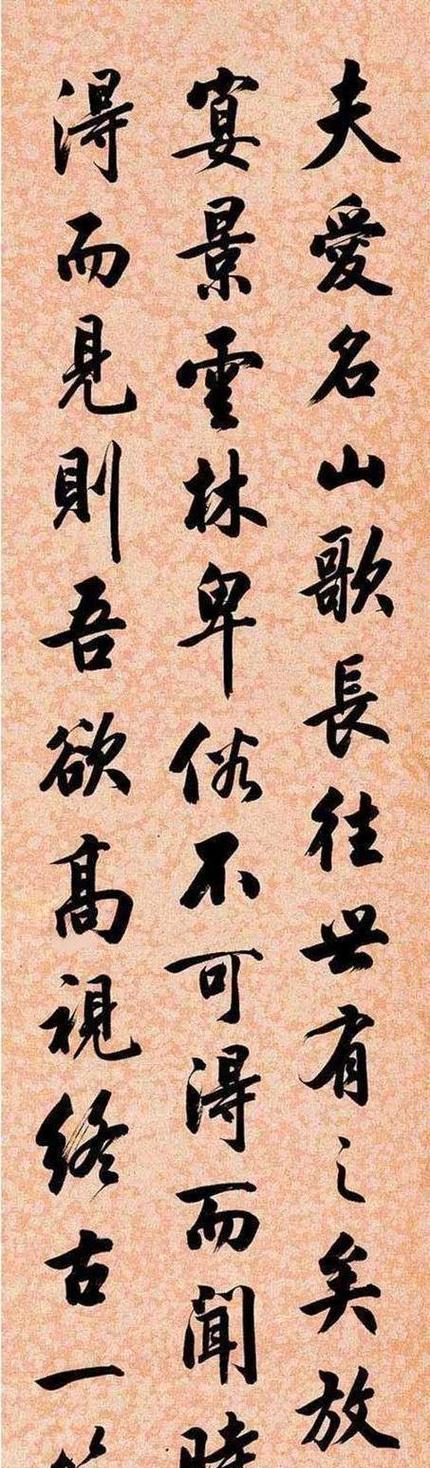 夫愛名山歌長往世有之矣放
宴景雲林卑俗不可得而聞時
得而見則吾欲高視終古一